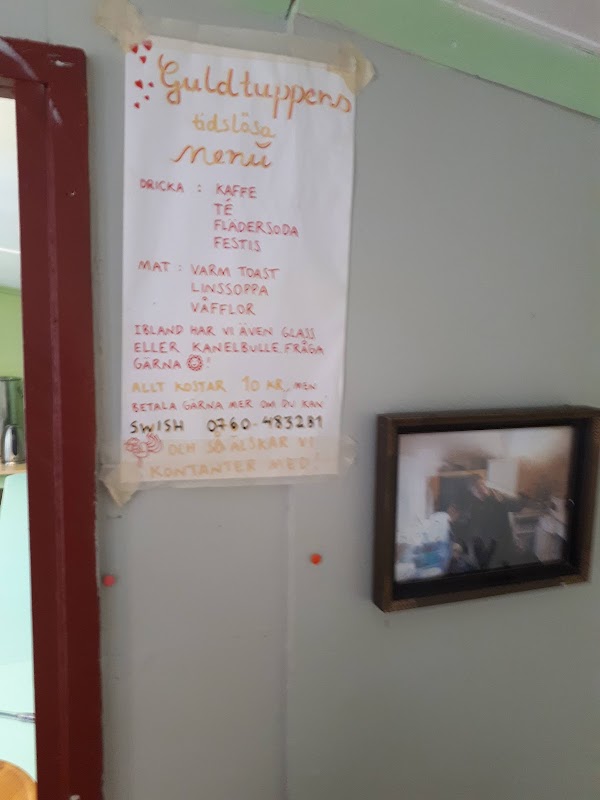 Guldtuppens
tidslösa
Menü
DRICKA : KAFFE
TÉ
FLÄDERSODA
FESTIS
MAT : VARM TOAST
LINSSOPPA
VÅFFLOR
IBLAND HAR VI ÄVEN GLASS
ELLER KANELBULLE. FRÅGA
GÄRNA !
ALLT KOSTAR 10 KR, MEN
BETALA GÄRNA MER OM DU KAN!
SWISH 0760-483281
OCH SÅ ÄLSKAR VI
KONTANTER MED!